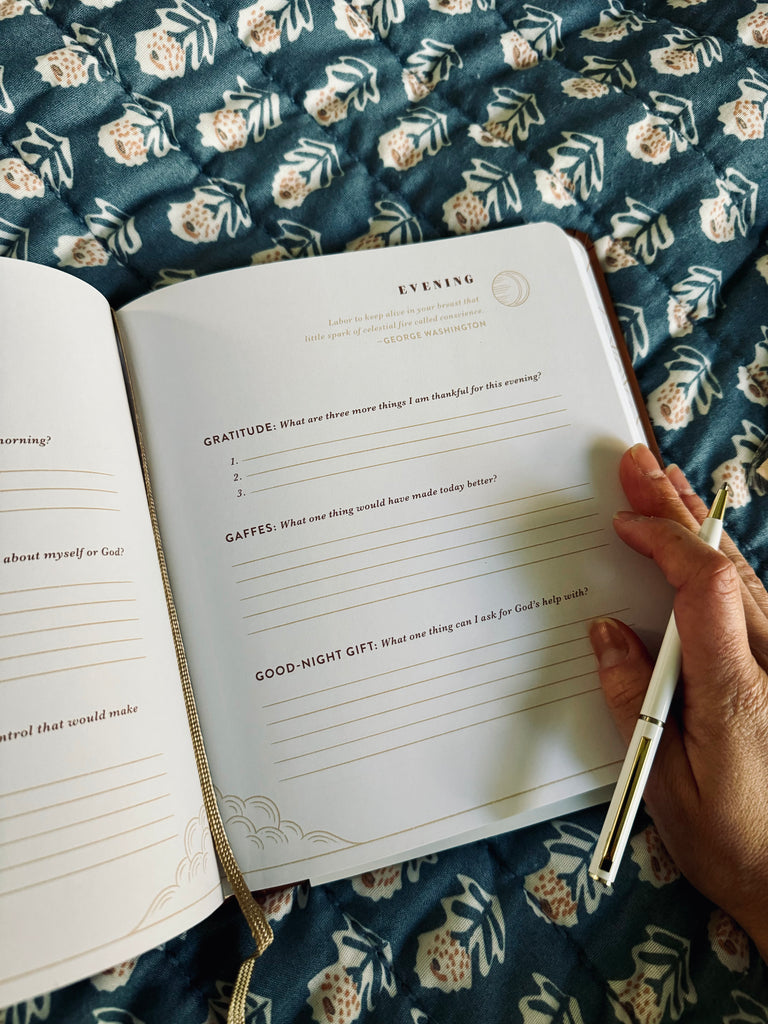 orning?
about myself or God?
ntrol that would make
EVENING
Labor to keep alive in your breast that
little spark of celestial fire called conscience.
—GEORGE WASHINGTON
GRATITUDE: What are three more things I am thankful for this evening?
1.
2.
3.
GAFFES: What one thing would have made today better?
GOOD-NIGHT GIFT: What one thing can I ask for God's help with?